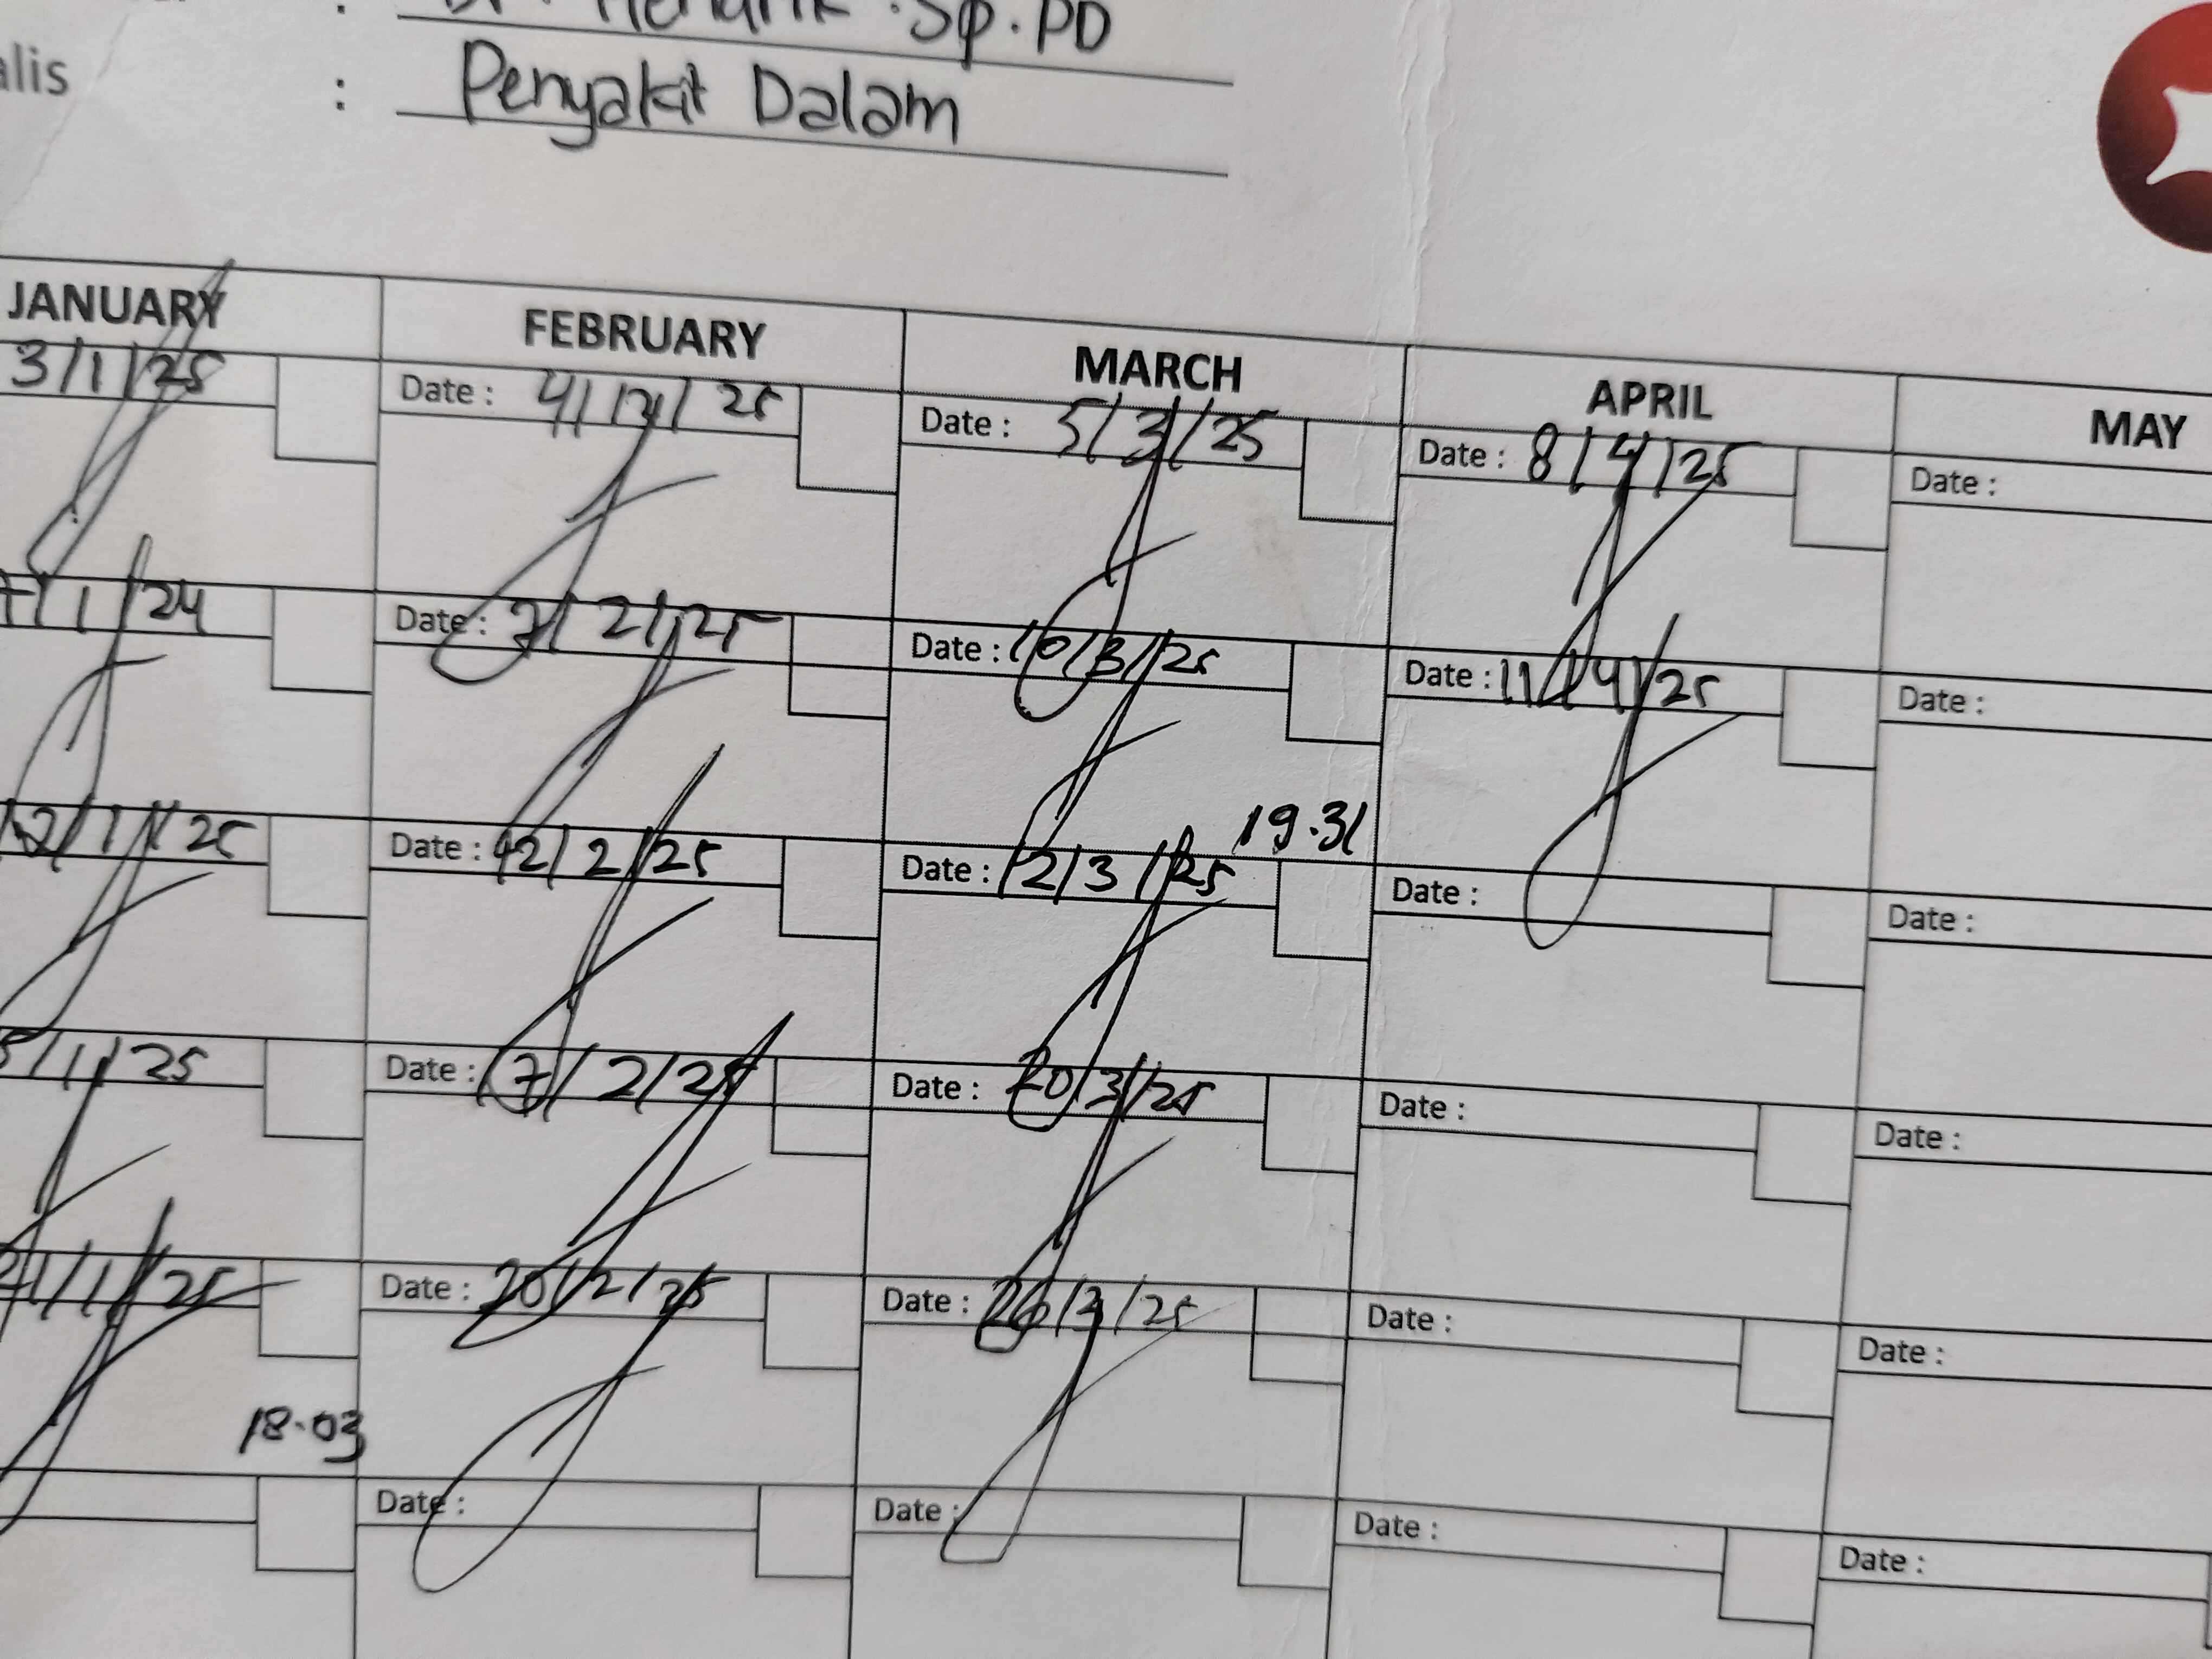 : Dr. Hendrik .Sp.PD
alis : Penyakit Dalam
JANUARY FEBRUARY MARCH APRIL MAY
3/1/25 Date : 4/2/25 Date : 5/3/25 Date : 8/4/25 Date :
7/1/24 Date : 7/2/25 Date : 10/3/25 Date : 11/4/25 Date :
19.31
12/1/25 Date : 12/2/25 Date : 12/3/25 Date : Date :
5/1/25 Date : 17/2/25 Date : 20/3/25 Date : Date :
21/1/25 Date : 20/2/25 Date : 26/3/25 Date : Date :
18.03
Date : Date : Date : Date :